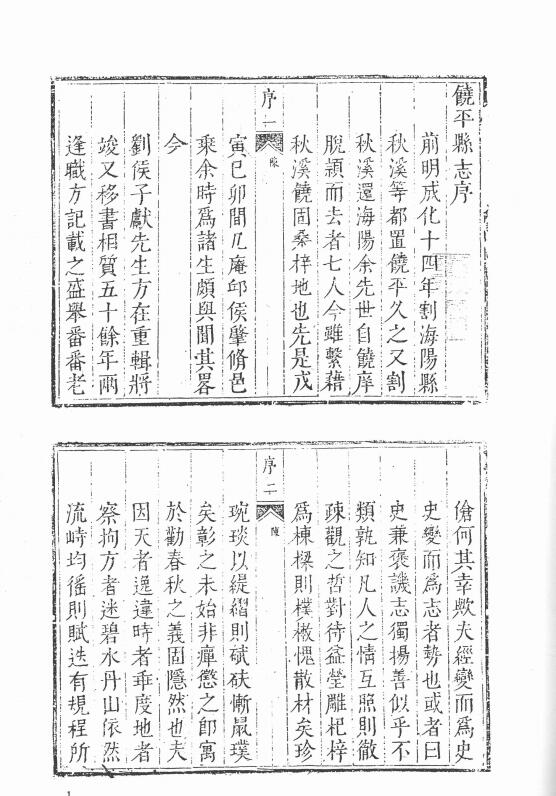 饒平縣志序
前明成化十四年割海陽縣
秋溪等都置饒平久之又割
秋溪還海陽余先世自饒庠
脫穎而去者七人今雖繫籍
秋溪饒固桑梓地也先是戊
序一
陳
寅己卯間几庵邱侯肇脩邑
乘余時爲諸生頗與聞其畧
今
劉侯子獻先生方在重輯將
竣又移書相質五十餘年兩
逢職方記載之盛舉番番老
傖何其幸歟夫經變而爲史
史變而爲志者勢也或者曰
史兼褒譏志獨揚善似乎不
類孰知凡人之情互照則徹
疎觀之哲對待益瑩雕杞梓
爲棟樑則樸樕愧散材矣珍
序二
陳
琬琰以緹縚則碔砆慚屓璞
矣彰之未始非癉懲之卽寓
於勸春秋之義固隱然也夫
因天者逸違時者乖度地者
察拘方者迷碧水丹山依然
流峙均徭則賦迭有規程所
1